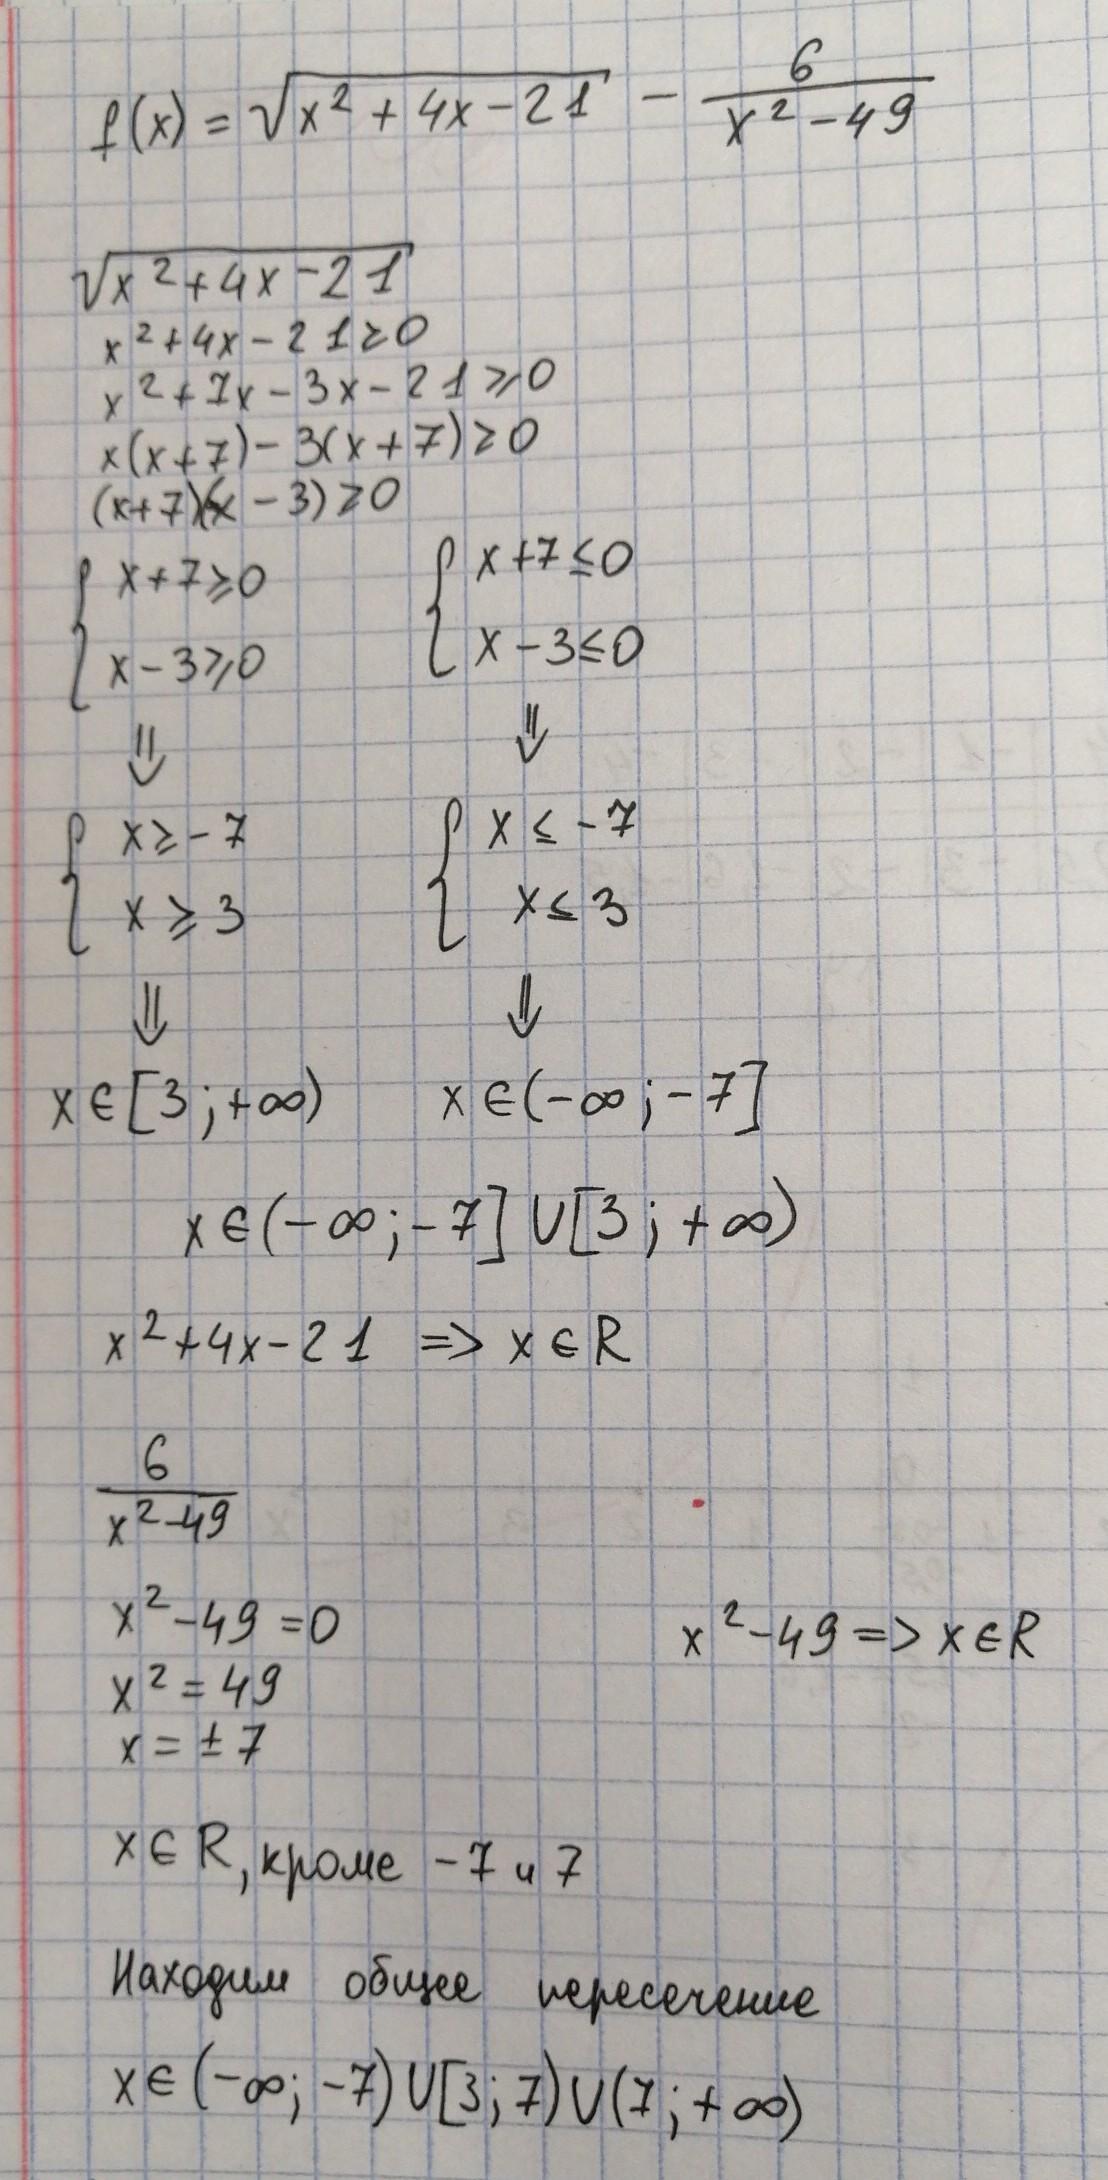 f(x) = √(x² + 4x - 21) - 6/(x² - 49)
√(x² + 4x - 21)
x² + 4x - 21 ≥ 0
x² + 7x - 3x - 21 ≥ 0
x(x + 7) - 3(x + 7) ≥ 0
(x + 7)(x - 3) ≥ 0
{ x + 7 ≥ 0 { x + 7 ≤ 0
x - 3 ≥ 0 x - 3 ≤ 0
⇓ ⇓
{ x ≥ -7 { x ≤ -7
x ≥ 3 x ≤ 3
⇓ ⇓
x ∈ [3; +∞) x ∈ (-∞; -7]
x ∈ (-∞; -7] ∪ [3; +∞)
x² + 4x - 21 => x ∈ R
6/(x² - 49)
x² - 49 = 0 x² - 49 => x ∈ R
x² = 49
x = ± 7
x ∈ R, кроме -7 и 7
Находим общее пересечение
x ∈ (-∞; -7) ∪ [3; 7) ∪ (7; +∞)